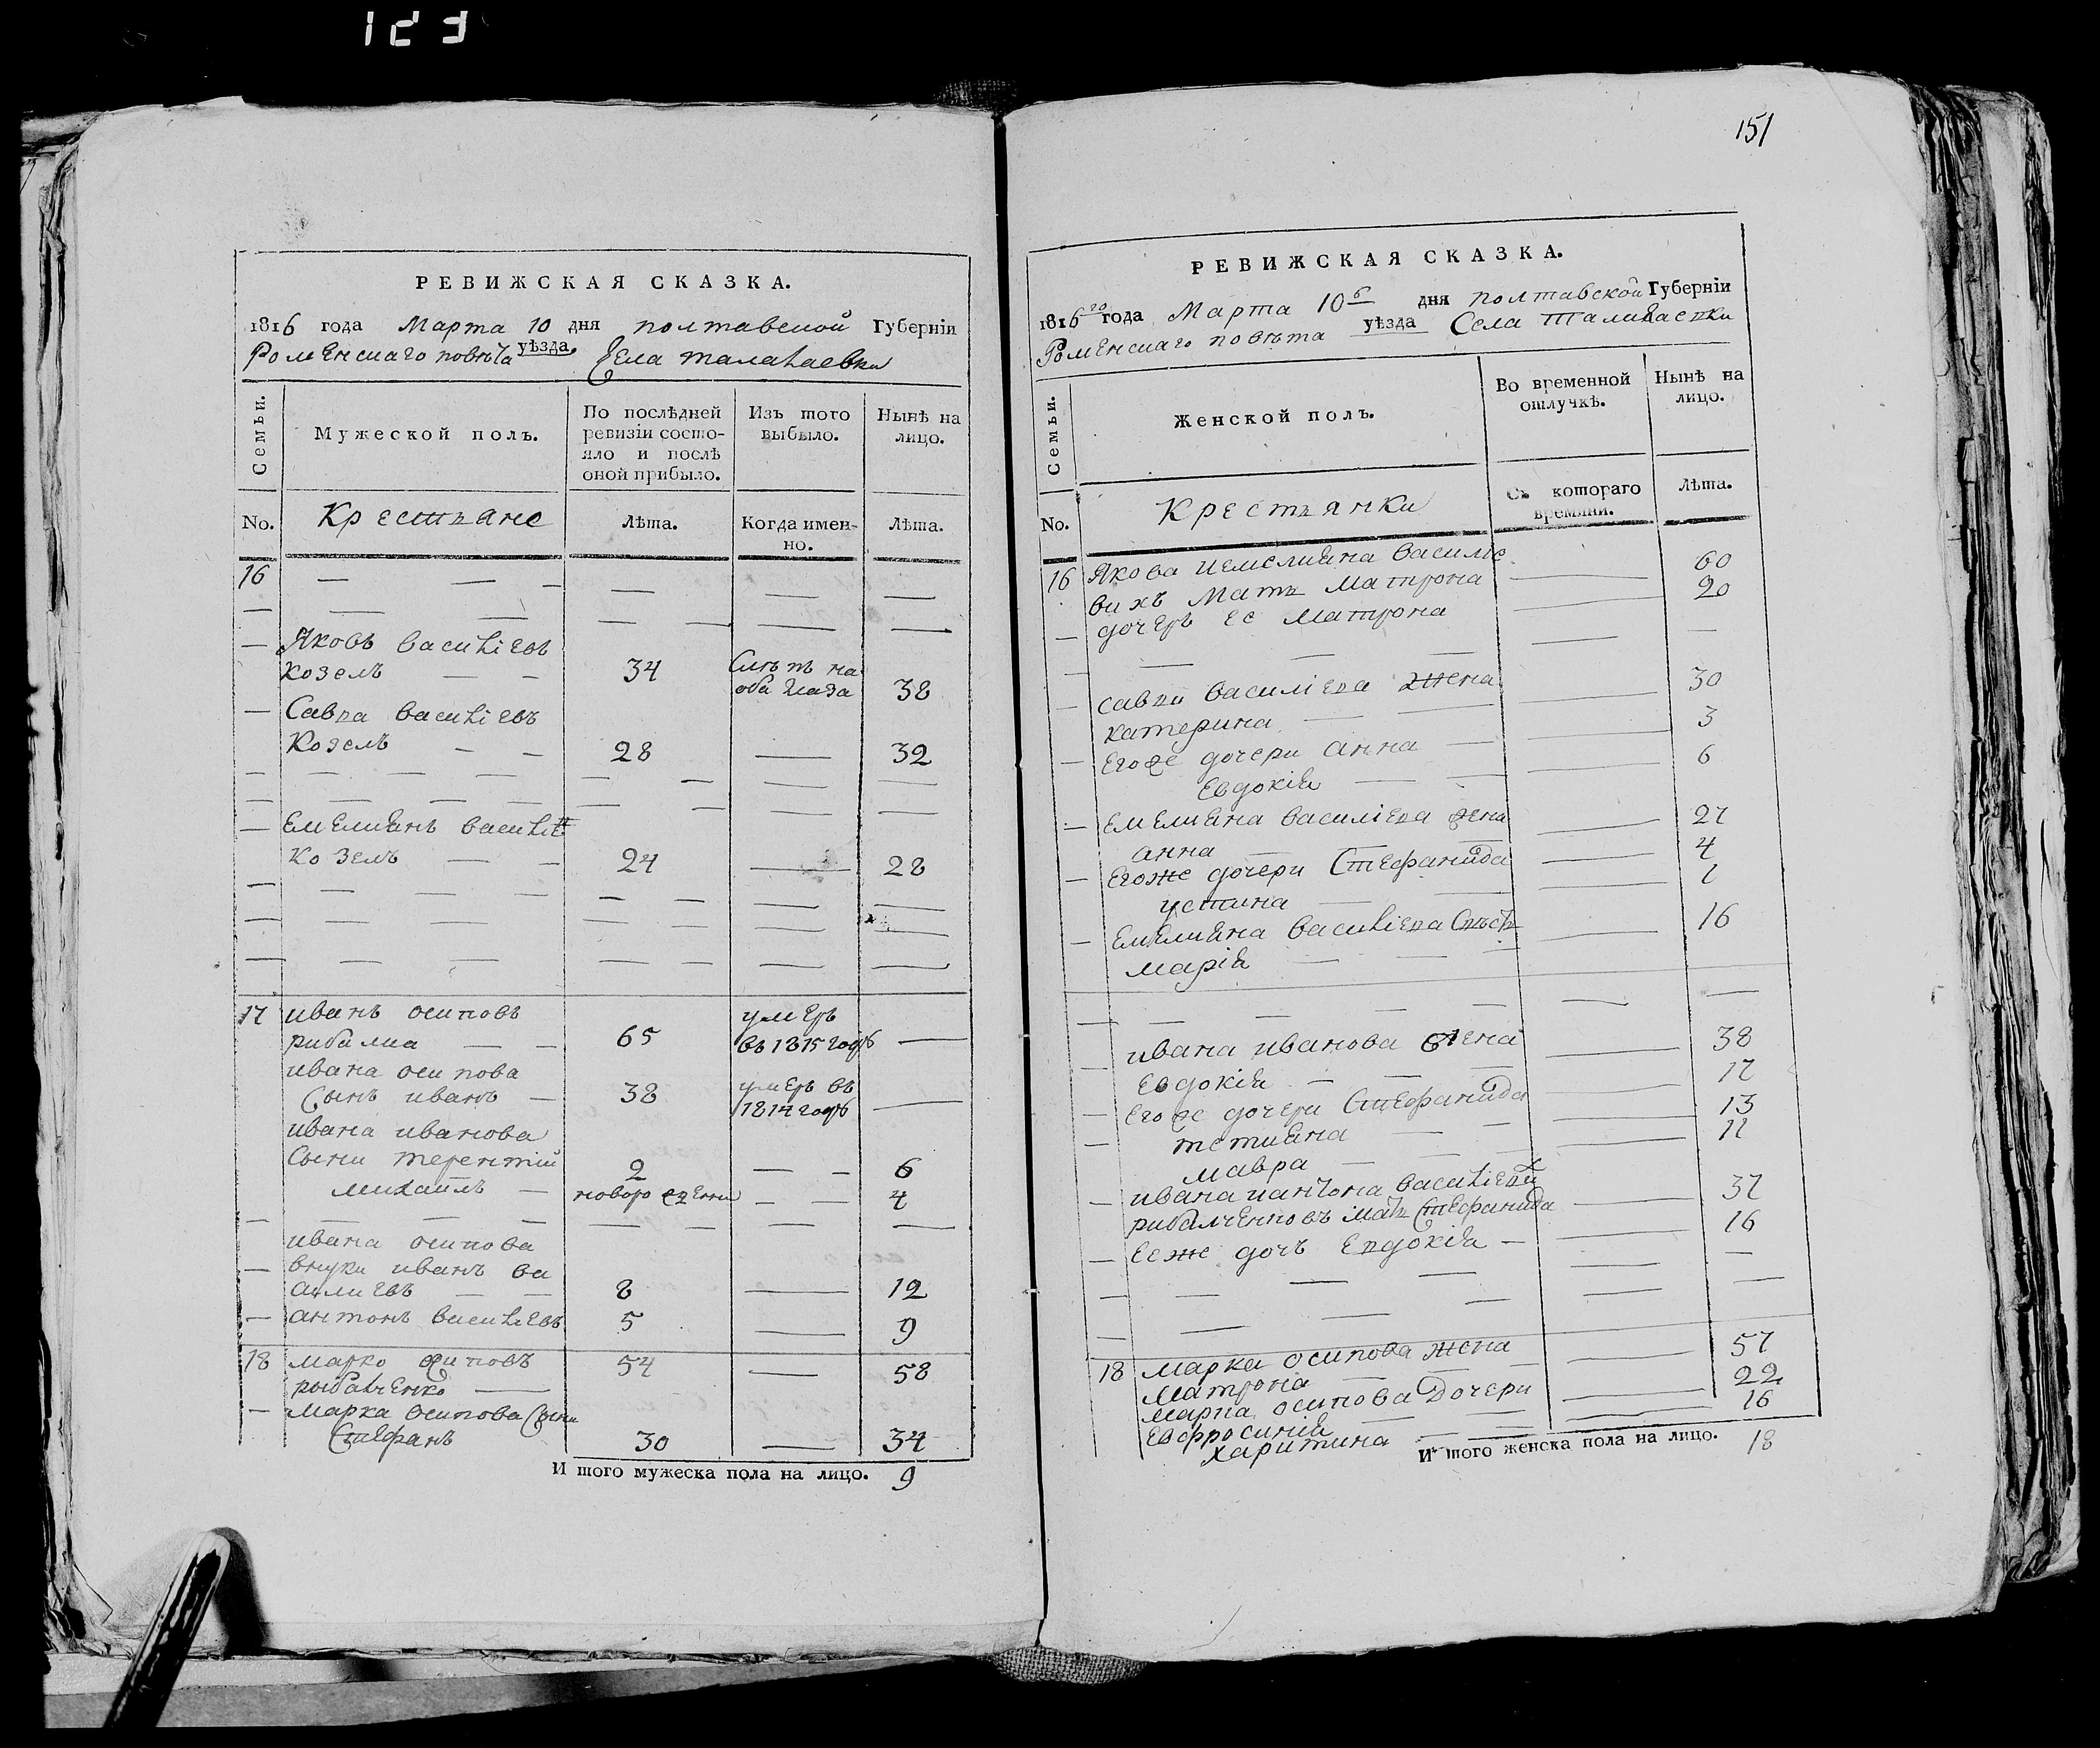 123
РЕВИЖСКАЯ СКАЗКА.
1816 года Марта 10 дня полтавской Губерніи
Роменскаго повѣта уѣзда Села талалаевки
Семьи.
Мужеской полъ.
По послѣдней ревизіи состо-
яло и послѣ
оной прибыло.
Изъ того
выбыло.
Нынѣ на
лицо.
No.
Крестьяне
Лѣта.
Когда имен-
но.
Лѣта.
16
Яковъ василіевъ
козелъ 34 слѣпъ на
оба глаза 38
Савва василіевъ
Козелъ 28 32
Емелианъ василіе
козелъ 24 28
17 иванъ осиповъ умеръ
рибалка 65 въ 1815 годѣ
ивана осипова
Сынъ иванъ 38 умеръ въ
1814 годѣ
ивана иванова
Сыни терентий 2 6
михаилъ новорожденни 4
ивана осипова
внуки иванъ ва
силиевъ 8 12
антонъ василіевъ 5 9
18 марко осиповъ 54 58
рыбалченко
марка осипова Сыни
Стефанъ 30 34
И того мужеска пола на лицо. 9
151
РЕВИЖСКАЯ СКАЗКА.
1816го года Марта 10 дня полтавской Губерніи
Роменскаго повѣта уѣзда Села талалаевки
Семьи.
Женской полъ.
Во временной
отлучкѣ.
Нынѣ на
лицо.
No.
Крестьянки
Съ котораго
времяни.
Лѣта.
16 Якова иемелияна василіе
вихъ мать матрона 60
дочеръ ее матрона 20
саввы василіева жена
катерина 30
Егоже дочери анна 3
Евдокія 6
Емелияна василіева жена
анна 27
Егоже дочери Стефанида 4
устина 1
Емелияна василіева
марія 16
ивана иванова жена
Евдокія 38
Егоже дочери Стефанида 17
тетияна 13
мавра 11
ивана иантона василіеви
рибалченковъ мать Стефанида 37
Ееже дочъ Евдокія 16
18 марка осипова жена
матрона 57
марка осипова Дочери
Евфросинія 22
харитина 16
И того женска пола на лицо. 18